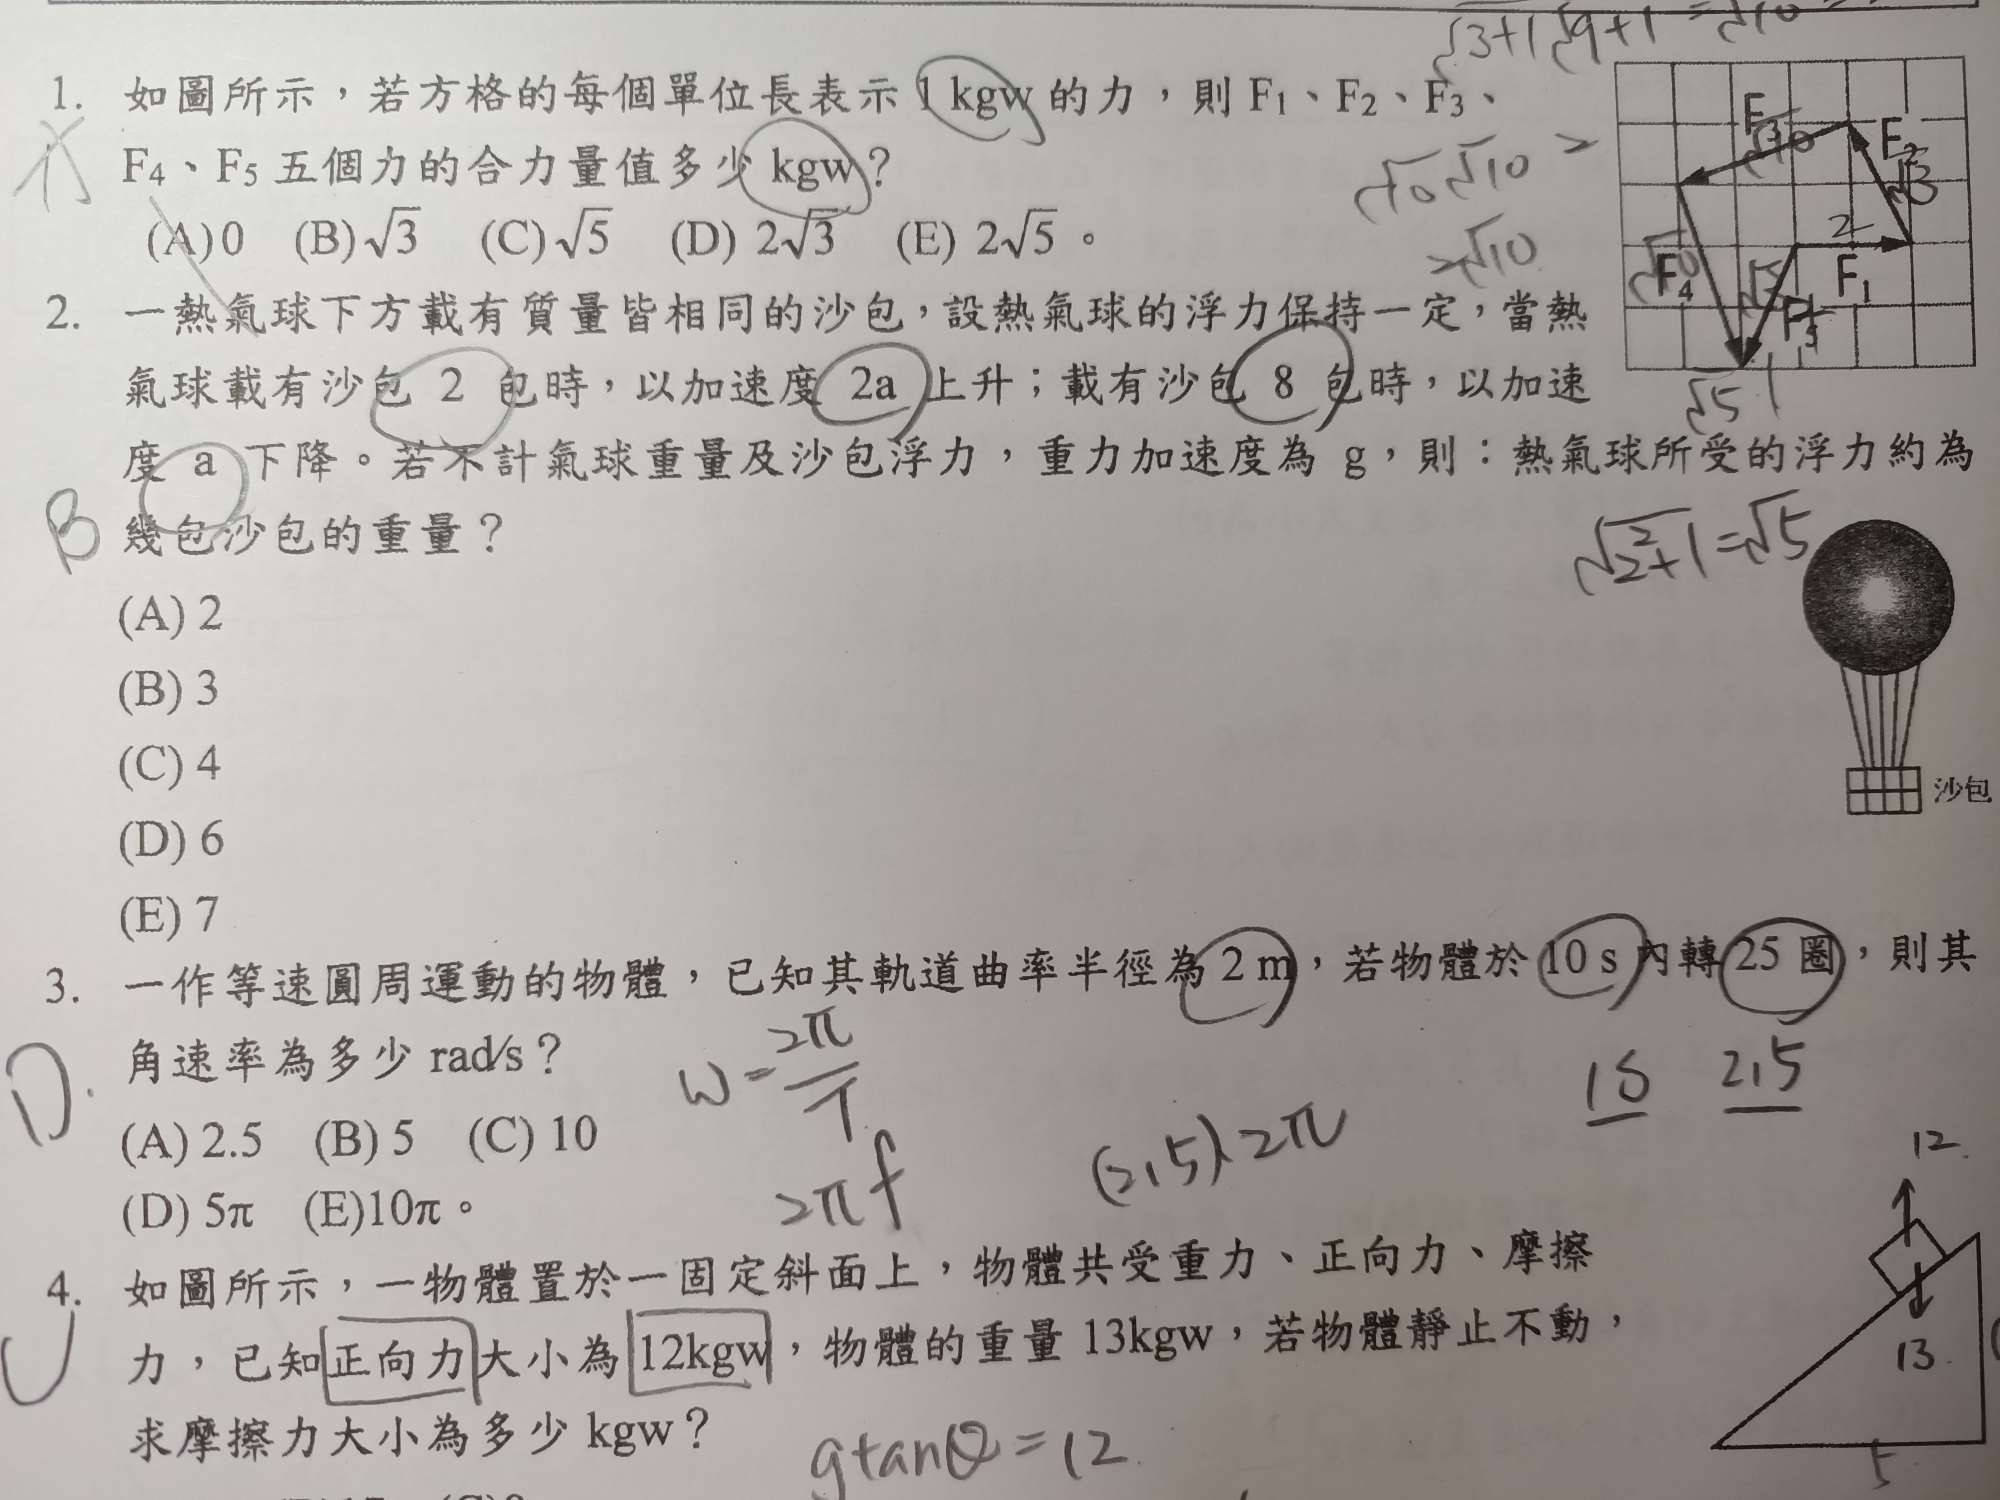 1. 如圖所示，若方格的每個單位長表示 1 kgw 的力，則 F₁、F₂、F₃、
F₄、F₅ 五個力的合力量值多少 kgw？
(A)0 (B)√3 (C)√5 (D) 2√3 (E) 2√5。
√3+1 √9+1 = √10
√10 √10 =
√10
F₃
√10
F₂
√3
2
F₁
F₄
√10
√5
F₅
√5
2. 一熱氣球下方載有質量皆相同的沙包，設熱氣球的浮力保持一定，當熱
氣球載有沙包 2 包時，以加速度 2a 上升；載有沙包 8 包時，以加速
度 a 下降。若不計氣球重量及沙包浮力，重力加速度為 g，則：熱氣球所受的浮力約為
B 幾包沙包的重量？
√2²+1 = √5
(A) 2
(B) 3
(C) 4
(D) 6
(E) 7
沙包
3. 一作等速圓周運動的物體，已知其軌道曲率半徑為 2 m，若物體於 10 s 內轉 25 圈，則其
D. 角速率為多少 rad/s？
w = 2π/T
1s 2.5
(A) 2.5 (B) 5 (C) 10
(2.5)·2π
2πf
(D) 5π (E)10π。
4. 如圖所示，一物體置於一固定斜面上，物體共受重力、正向力、摩擦
力，已知正向力大小為 12kgw，物體的重量 13kgw，若物體靜止不動，
求摩擦力大小為多少 kgw？
12
13
5
gtanθ = 12